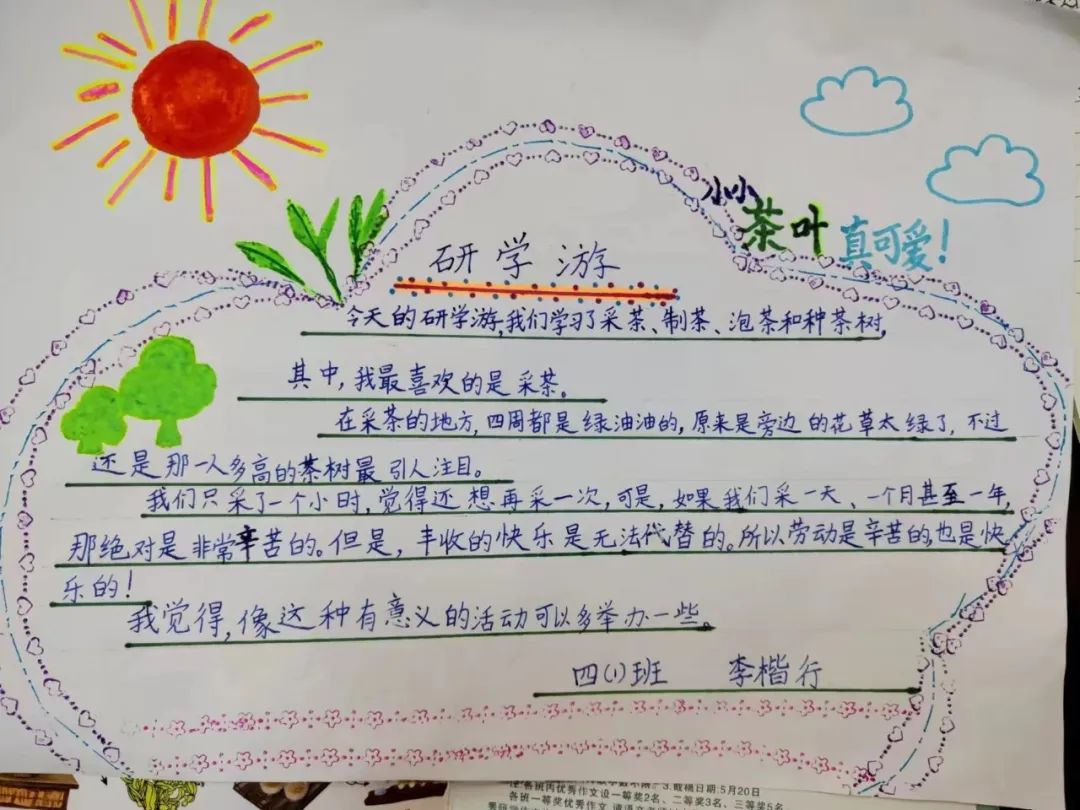 小小茶叶真可爱!
研学游
今天的研学游,我们学习了采茶、制茶、泡茶和种茶树,
其中,我最喜欢的是采茶。
在采茶的地方,四周都是绿油油的,原来是旁边的花草太绿了,不过
还是那一人多高的茶树最引人注目。
我们只采了一个小时,觉得还想再采一次,可是,如果我们采一天、一个月甚至一年,
那绝对是非常辛苦的。但是,丰收的快乐是无法代替的。所以劳动是辛苦的,也是快
乐的!
我觉得,像这种有意义的活动可以多举办一些。
四(1)班 李楷行
3.截稿日期:5月20日
各班一等奖优秀作文2名、二等奖3名、三等奖5名